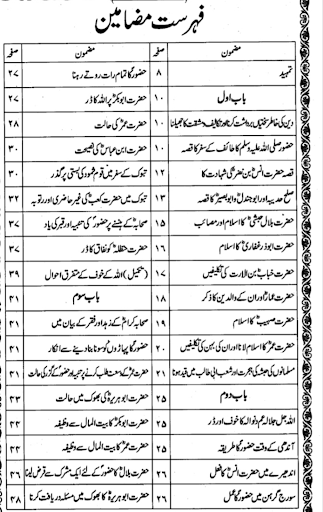 فہرست مضامین
مضمون صفحہ
تمہید ۸
باب اول ۱۰
دین کی خاطر سختیاں برداشت کرنا اور تکالیف و مشقت کا جھیلنا ۱۰
حضور صلی اللہ علیہ وسلم کا طائف کے سفر کا قصہ ۱۰
قصہ حضرت انسؓ بن نضرؓ کی شہادت کا ۱۲
صلح حدیبیہ اور ابو جندلؓ و ابو بصیرؓ کا قصہ ۱۳
حضرت بلال حبشیؓ کا اسلام اور مصائب ۱۵
حضرت ابوذر غفاریؓ کا اسلام ۱۶
حضرت خبابؓ بن الارت کی تکلیفیں ۱۷
حضرت عمارؓ اور ان کے والدین کا ذکر ۱۸
حضرت صہیبؓ کا اسلام ۱۹
حضرت عمرؓ کا اسلام لانا اور ان کی بہن کی تکلیفیں ۲۰
مسلمانوں کی حبشہ کی ہجرت اور شعب ابی طالب میں قید ہونا ۲۱
باب دوم ۲۵
اللہ جل جلالہ عم نوالہ کا خوف اور ڈر ۲۵
آندھی کے وقت حضورؐ کا طریقہ ۲۵
اندھیرے میں حضرت انسؓ کا فعل ۲۶
سورج گرہن میں حضورؐ کا عمل ۲۶
مضمون صفحہ
حضورؐ کا تمام رات روتے رہنا ۲۷
حضرت ابوبکرؓ پر اللہ کا ڈر ۲۷
حضرت عمرؓ کی حالت ۲۸
حضرت ابن عباسؓ کی نصیحت ۳۰
تبوک کے سفر میں قوم ثمود کی بستی پر گذر ۳۰
تبوک میں حضرت کعبؓ کی غیر حاضری اور توبہ ۳۲
صحابہؓ کے ہنسنے پر حضورؐ کی تنبیہ اور قبر کی یاد ۳۷
حضرت حنظلہؓ کو نفاق کا ڈر ۳۷
(تکمیل) اللہ کے خوف کے متفرق احوال ۳۹
باب سوم ۴۱
صحابہ کرامؓ کے زہد اور فقر کے بیان میں ۴۱
حضورؐ کا پہاڑوں کو سونا بنا دینے سے انکار ۴۱
حضرت عمرؓ کے وسعت طلب کرنے پر تنبیہ اور حضورؐ کے گزر کی حالت ۴۱
حضرت ابوہریرہؓ کی بھوک میں حالت ۴۳
حضرت ابوبکرؓ کا بیت المال سے وظیفہ ۴۴
حضرت عمرؓ کا بیت المال سے وظیفہ ۴۴
حضرت بلالؓ کا حضورؐ کے لئے ایک مشرک سے قرض لینا ۴۶
حضرت ابوہریرہؓ کا بھوک میں مسئلہ دریافت کرنا ۴۸